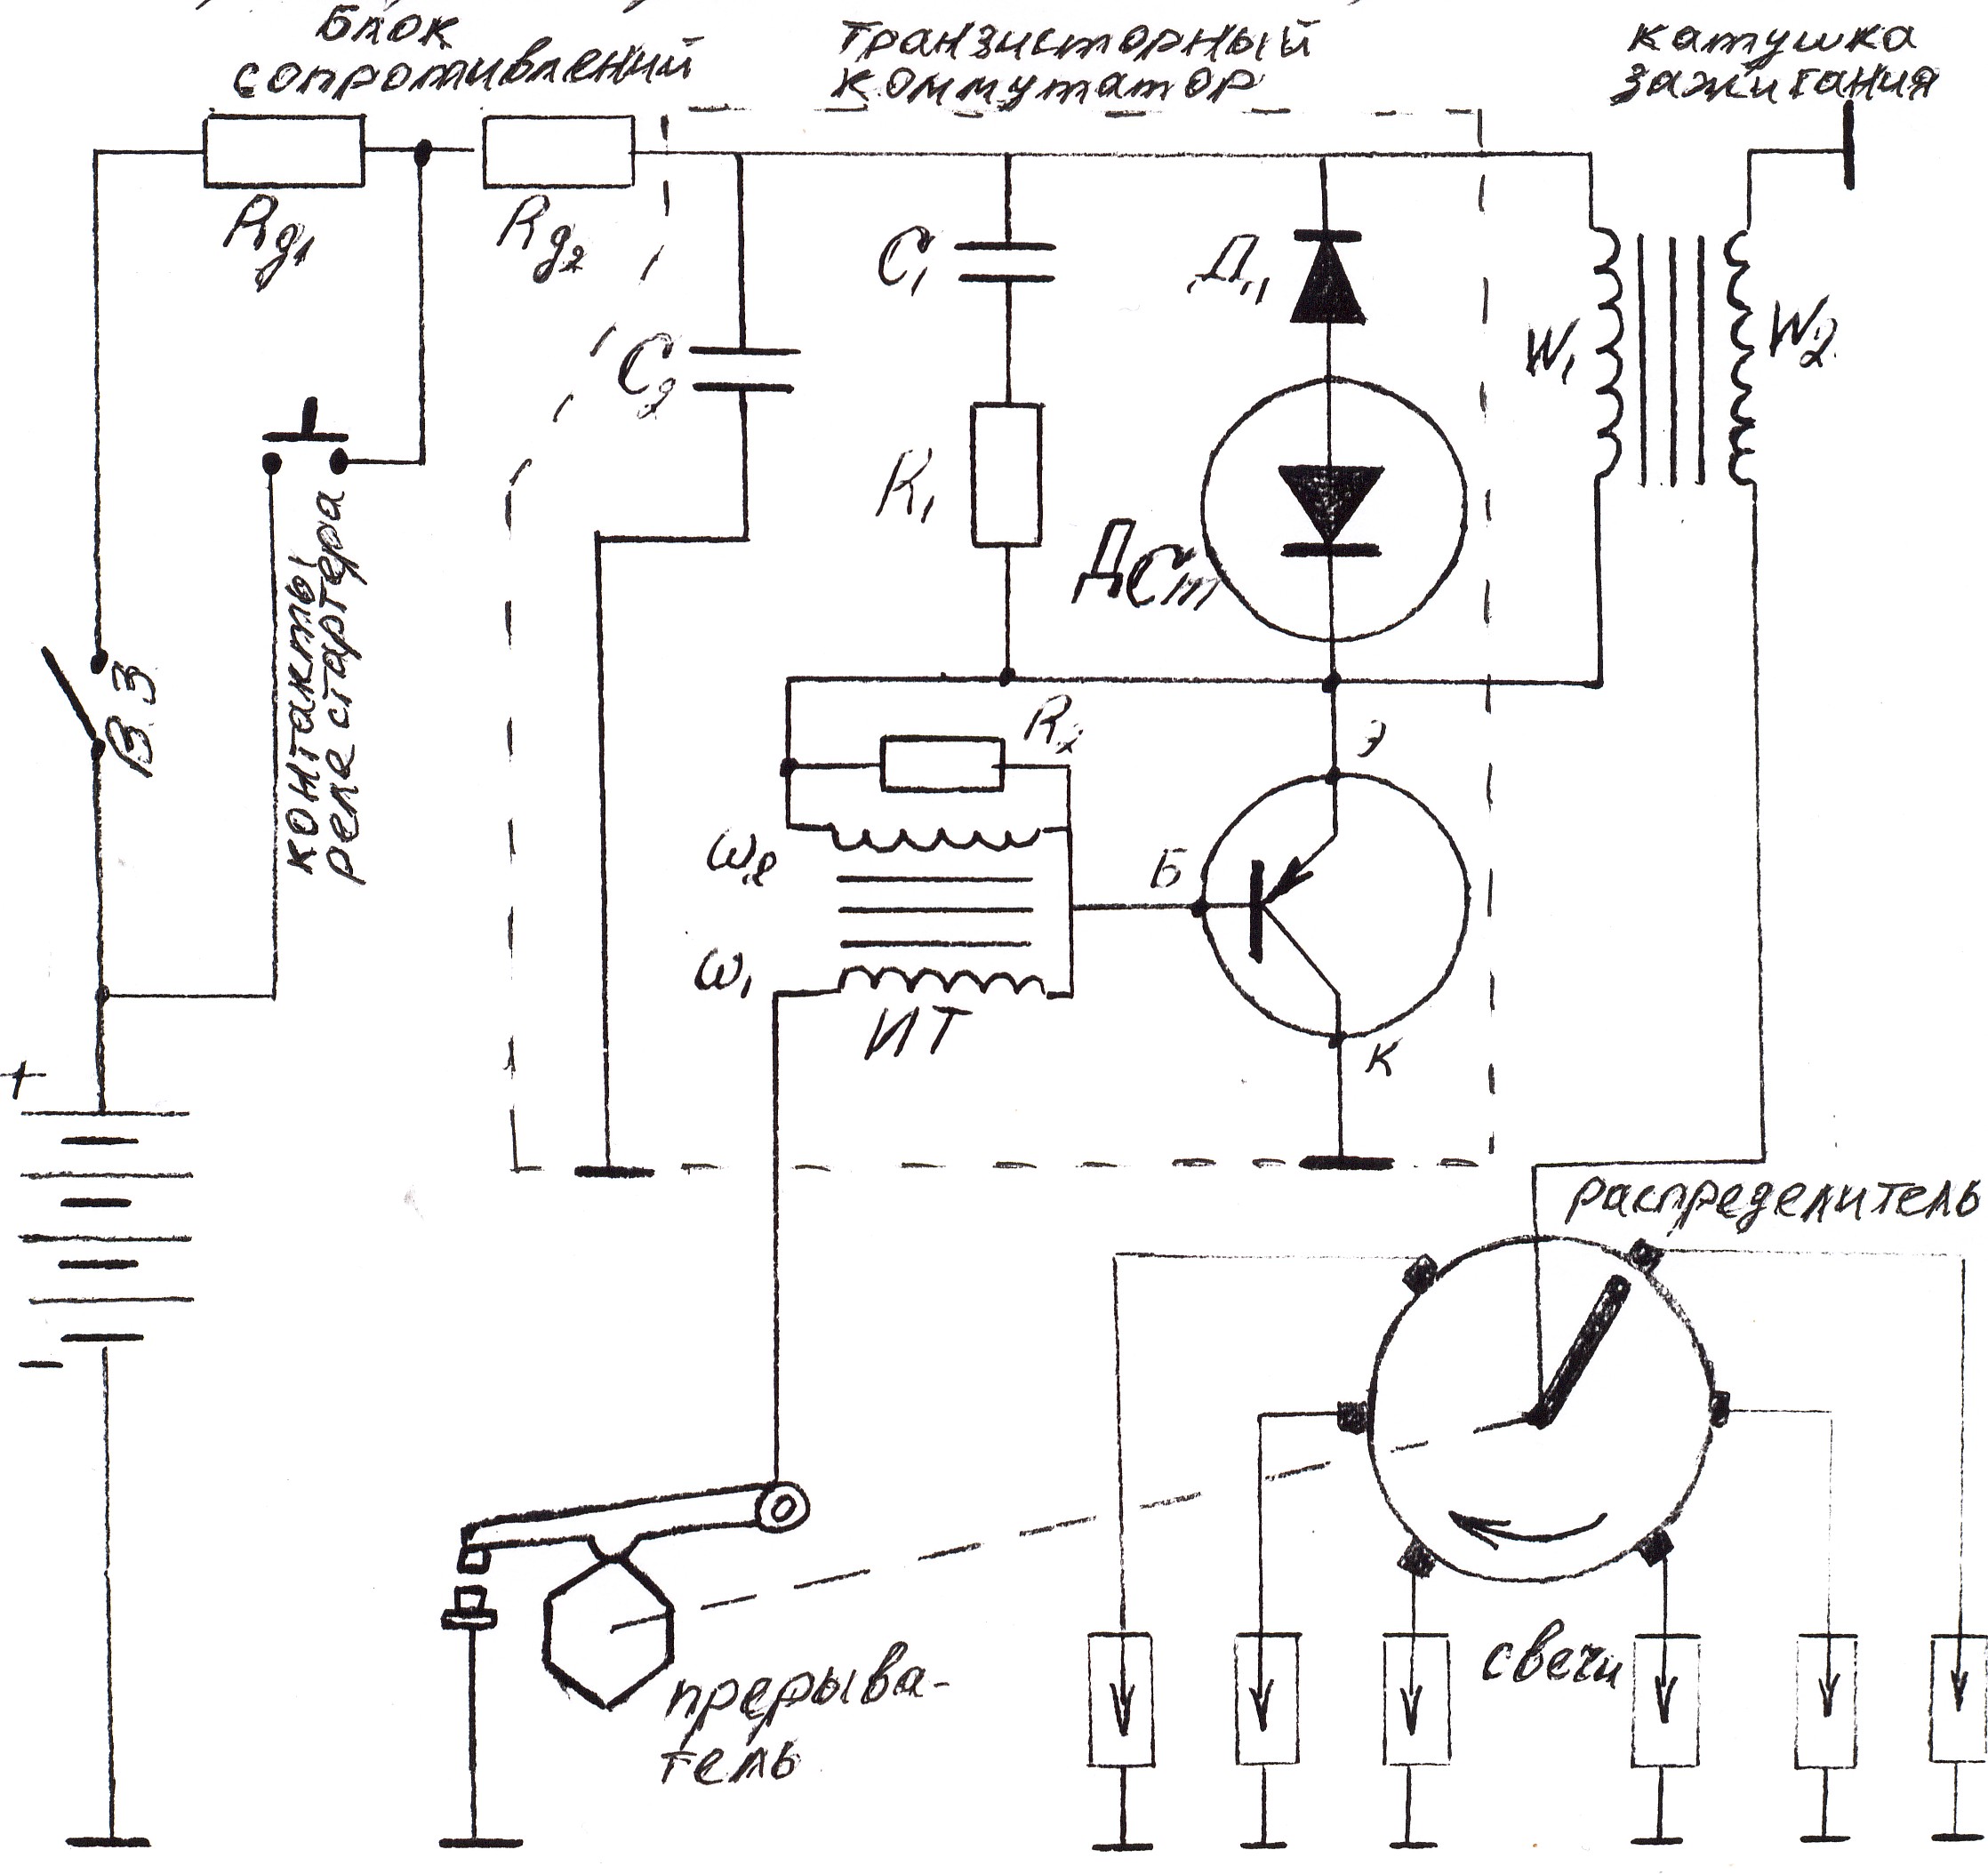 Блок
сопротивлений
транзисторный
коммутатор
катушка
зажигания
Rg1
Rg2
C1
Д11
W1
W2
C2
R1
Дст
контакты
реле стартера
В.З
R2
Э
ω2
Б
ω1
ИТ
К
+
−
распределитель
свечи
прерыва-
тель